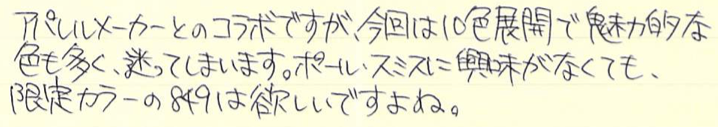 アパレルメーカーとのコラボですが、今回は10色展開で魅力的な
色も多く、迷ってしまいます。ポール・スミスに興味がなくても、
限定カラーの849は欲しいですよね。